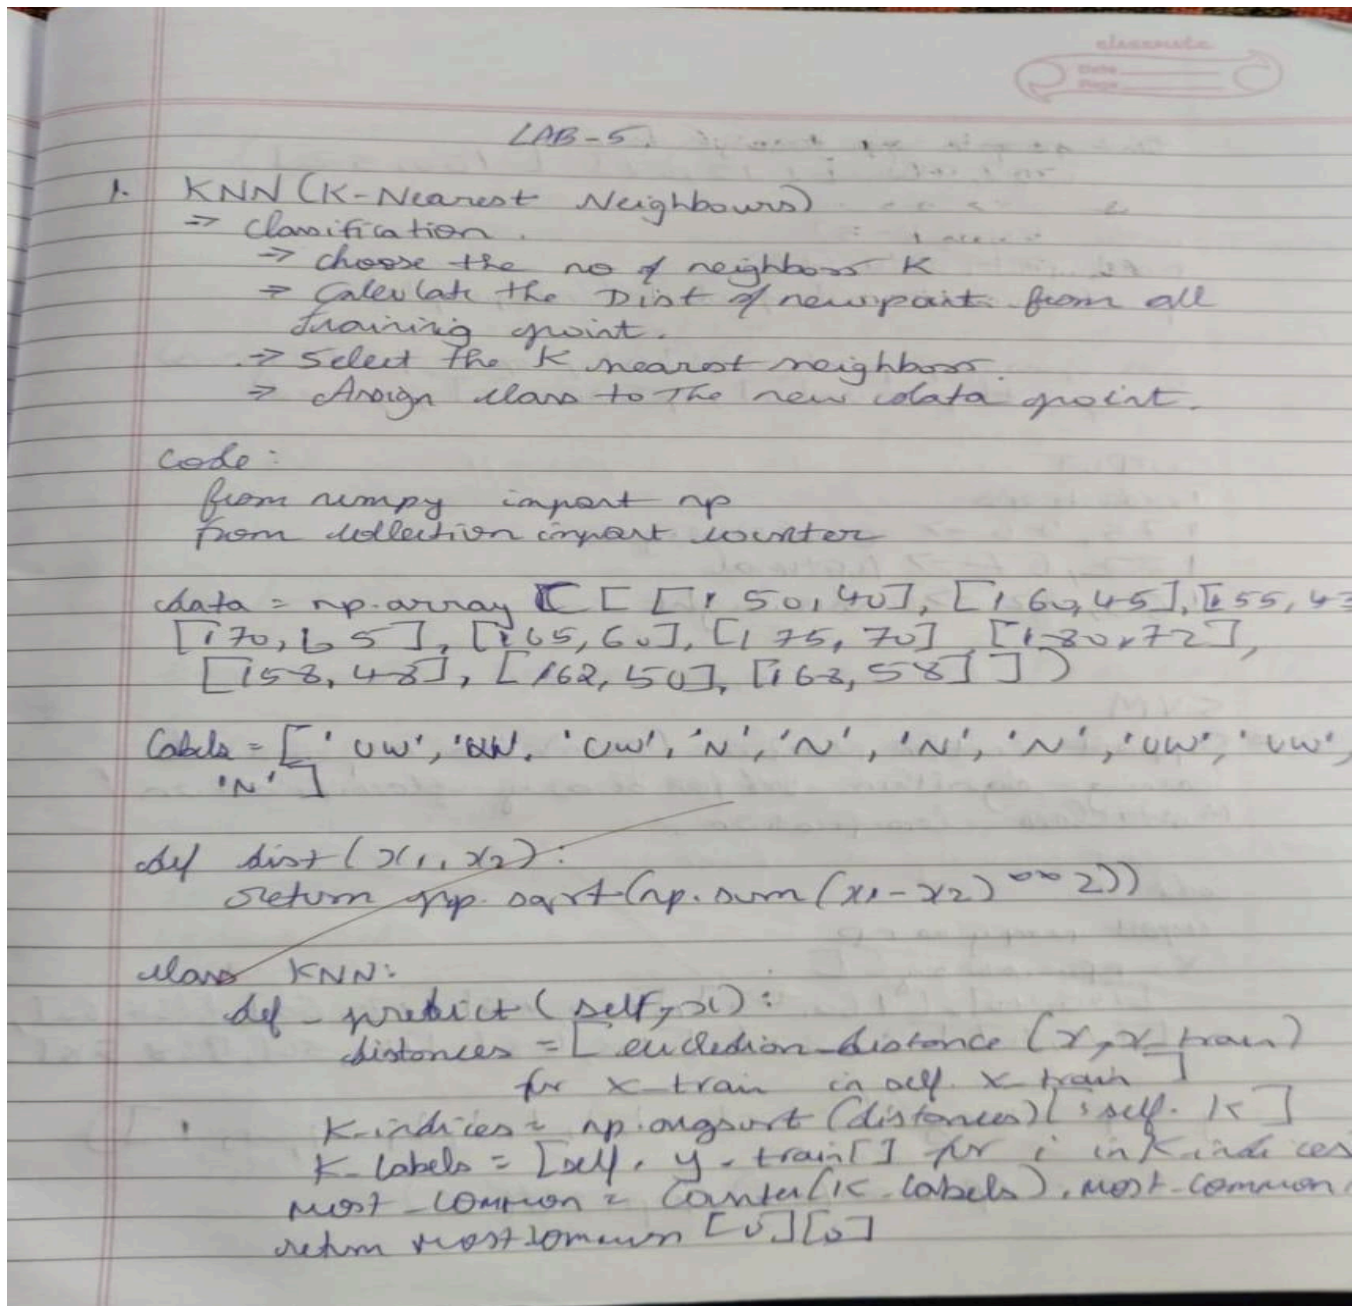 classmate
Date
Page
LAB-5.
1. KNN (K-Nearest Neighbours)
⇒ Classification.
→ choose the no of neighbors K
⇒ Calculate the Dist of new point from all
training point.
→ Select the K nearest neighbors.
⇒ Assign class to The new data point.
code:
from numpy import np
from collection import counter
data = np.array ([ [150,40], [160,45], [155,43
[170,65], [165,60], [175,70], [180,72],
[158,48], [162,50], [168,58] ] )
Labels = [ 'UW', 'UW, 'UW', 'N', 'N', 'N', 'N', 'UW', 'UW',
'N' ]
def dist (x1, x2):
return np.sqrt(np.sum (x1-x2)**2))
class KNN:
def _predict (self, x):
distances = [ eucledion_distance (x, x_train)
for x_train in self. x_train ]
K-indices = np.argsort (distances)[:self. K]
K_Labels = [self. y_train[] for i in K-indices
most_common = Counter(K_Labels).most_common
return most common [0][0]